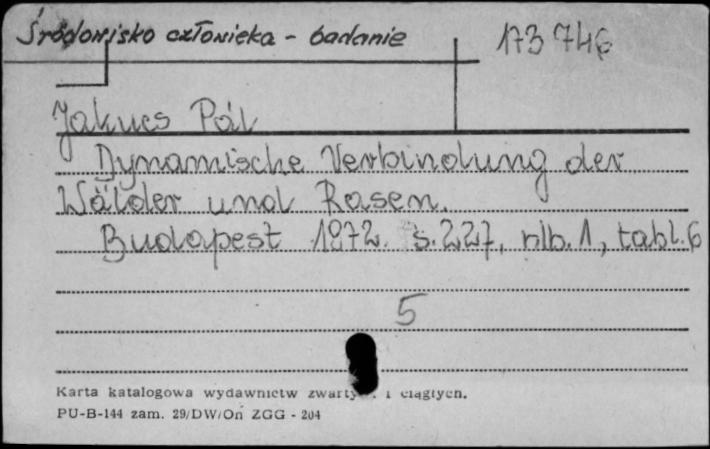 Środowisko człowieka - badanie
173 746
Jakucs Pál
Dynamische Verbindung der
Wälder und Rasen.
Budapest 1972. s. 227, nlb. 1, tabl. 6
5
Karta katalogowa wydawnictw i ciągłych.
PU-B-144 zam. 29/DW/On ZGG - 204